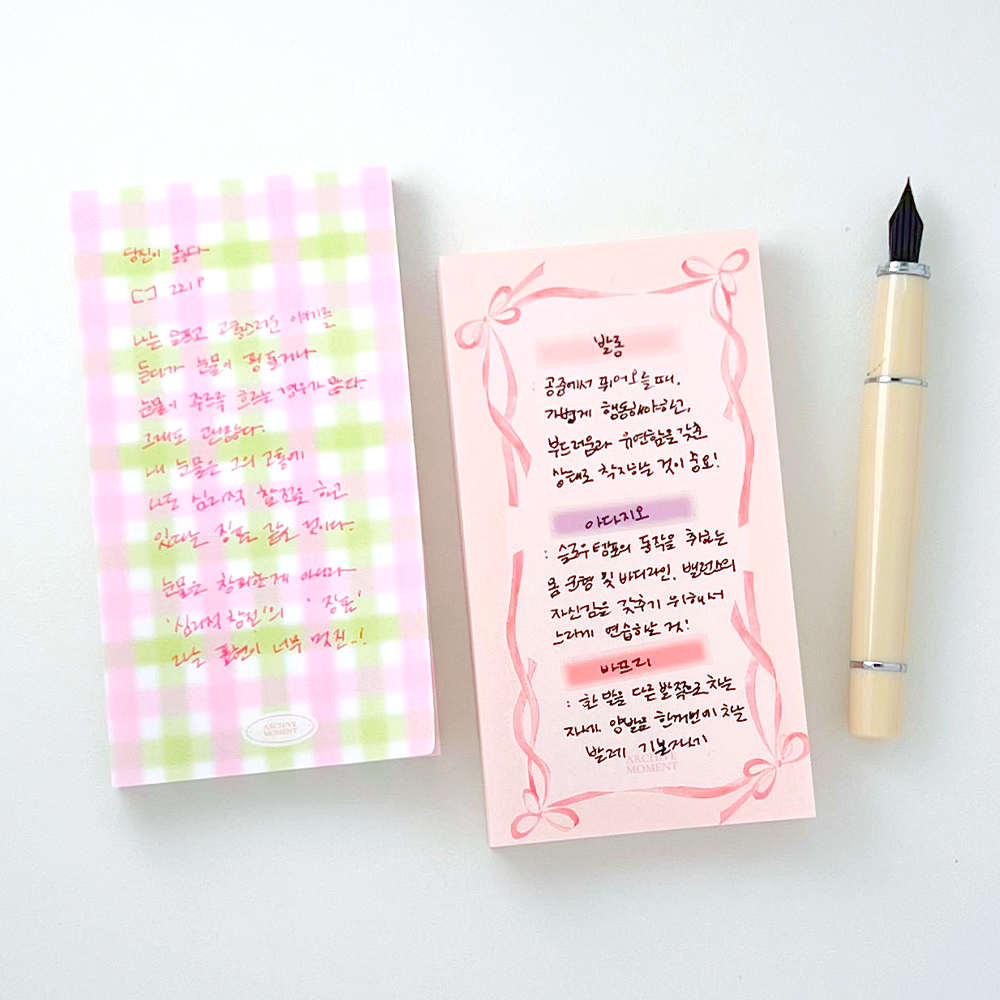 당신이 옳다
221P
나는 슬프고 고통스러운 이야기를
듣다가 눈물이 핑 돌거나
눈물이 주르륵 흐르는 경우가 많다.
그래도 괜찮다.
내 눈물은 그의 고통에
나도 심리적 참전을 하고
있다는 징표 같은 것이다.
눈물은 창피한게 아니라
'심리적 참전'의 '징표'
라는 표현이 너무 멋진..!
ARCHIVE
MOMENT
발롱
: 공중에서 뛰어오를 때,
가볍게 행동해야하고,
부드러움과 유연함을 갖춘
상태로 착지하는 것이 중요!
아다지오
: 슬로우템포의 동작을 취하는
몸 균형 및 바디라인, 밸런스의
자신감을 갖추기 위해서
느리게 연습하는 것!
바프리
: 한 발을 다른 발쪽으로 차는
자세. 양발을 한꺼번에 차는
발레 기본자세
ARCHIVE
MOMENT